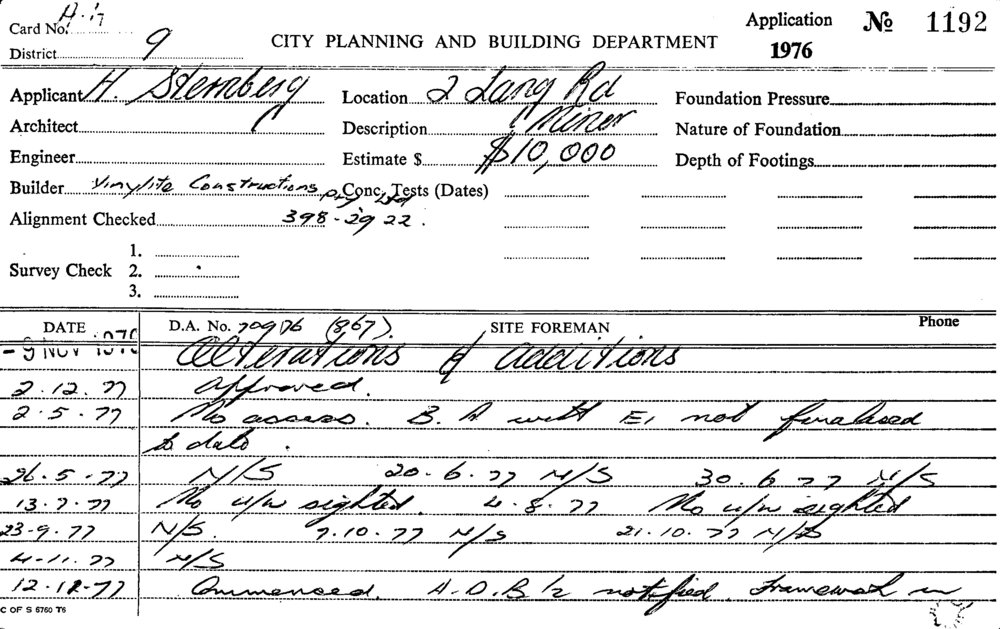 Card No. A.17
District 9
CITY PLANNING AND BUILDING DEPARTMENT
Application 1976
№ 1192
Applicant H. Sternberg
Location 2 Lang Rd
Foundation Pressure
Architect
Description Minor
Nature of Foundation
Engineer
Estimate $ $10,000
Depth of Footings
Builder Vinylite Constructions Pty Ltd
Conc. Tests (Dates)
Alignment Checked 398-29 22.
Survey Check
1.
2.
3.
DATE D.A. No. 709/76 (867). SITE FOREMAN Phone
- 9 NOV 1976 Alterations & additions
2.12.77 Approved.
2.5.77 No access. B.A with E, not finalised
to date.
26.5.77 N/S 20.6.77 N/S 30.6.77 N/S
13.7.77 No u/w sighted. 4.8.77 No u/w sighted
23-9.77 N/S. 7.10.77 N/S 21.10.77 N/S
4.11.77 N/S
12.12.77 Commenced. A.D.B. notified. Framework in
C OF S 6760 T6